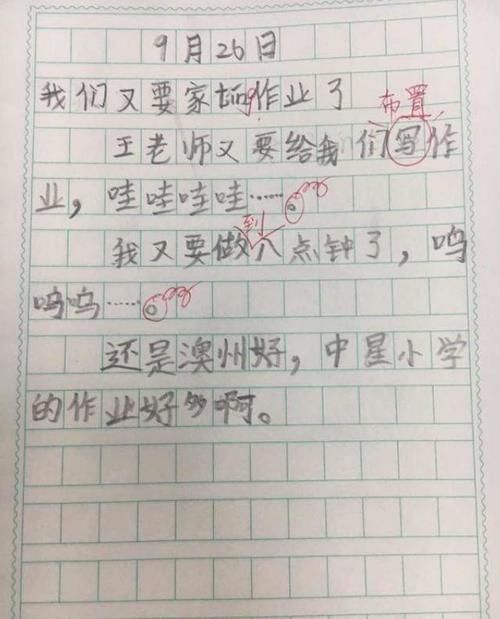 9月26日
我们又要家tíng作业了
布置
王老师又要给我们写作
业，哇哇哇哇……。
到
我又要做八点钟了，呜
呜呜……。
还是澳州好，中星小学
的作业好多啊。